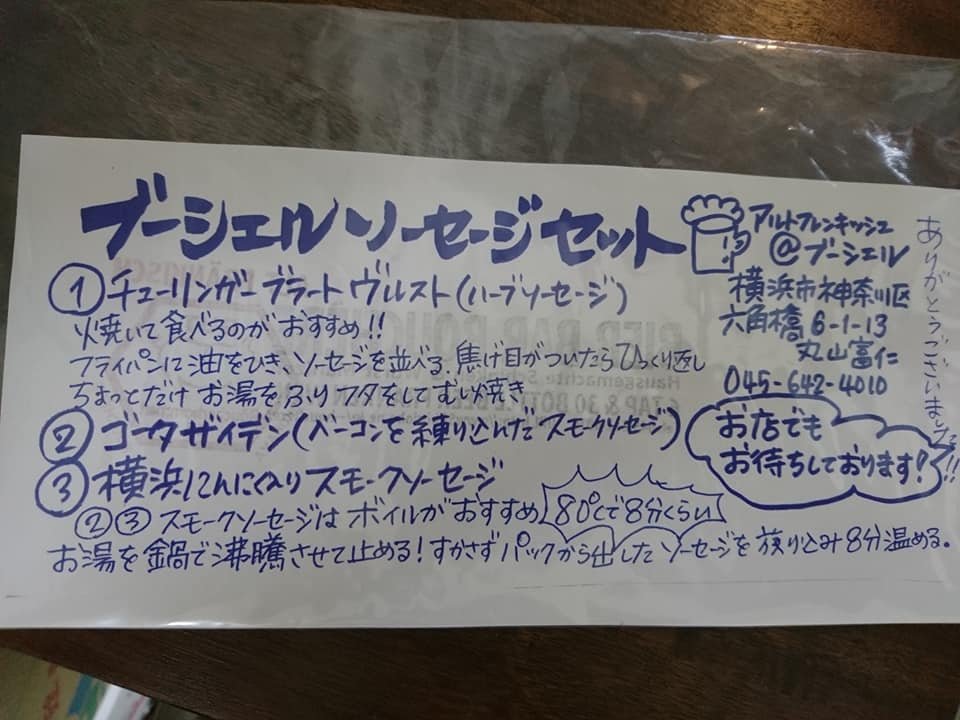 ブーシェルソーセージセット
① チューリンガーブラートヴルスト(ハーブソーセージ)
焼いて食べるのがおすすめ!!
フライパンに油をひき、ソーセージを並べる、焦げ目がついたらひっくり返し
ちょっとだけお湯をふりフタをしてむし焼き
② ゴータザイデン(ベーコンを練り込んだスモークソーセージ)
③ 横浜にんにく入りスモークソーセージ
②③スモークソーセージはボイルがおすすめ 80℃で8分くらい
お湯を鍋で沸騰させて止める!すかさずパックから出したソーセージを放り込み8分温める。
アルトフレンキッシュ
@ブーシェル
横浜市神奈川区
六角橋6-1-13
丸山富仁
045-642-4010
お店でも
お待ちしております!
ありがとうございました!!